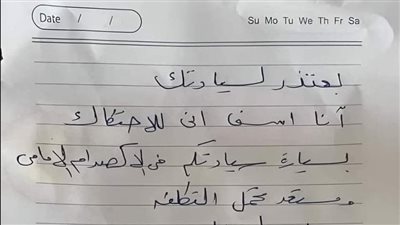 Date / /
Su Mo Tu We Th Fr Sa
بعتذر لسيادتك
أنا اسف انى للاحتكاك
بسيارة سيادتكم فى الاكصدام الامامى
ومستعد تحمل التكلفه